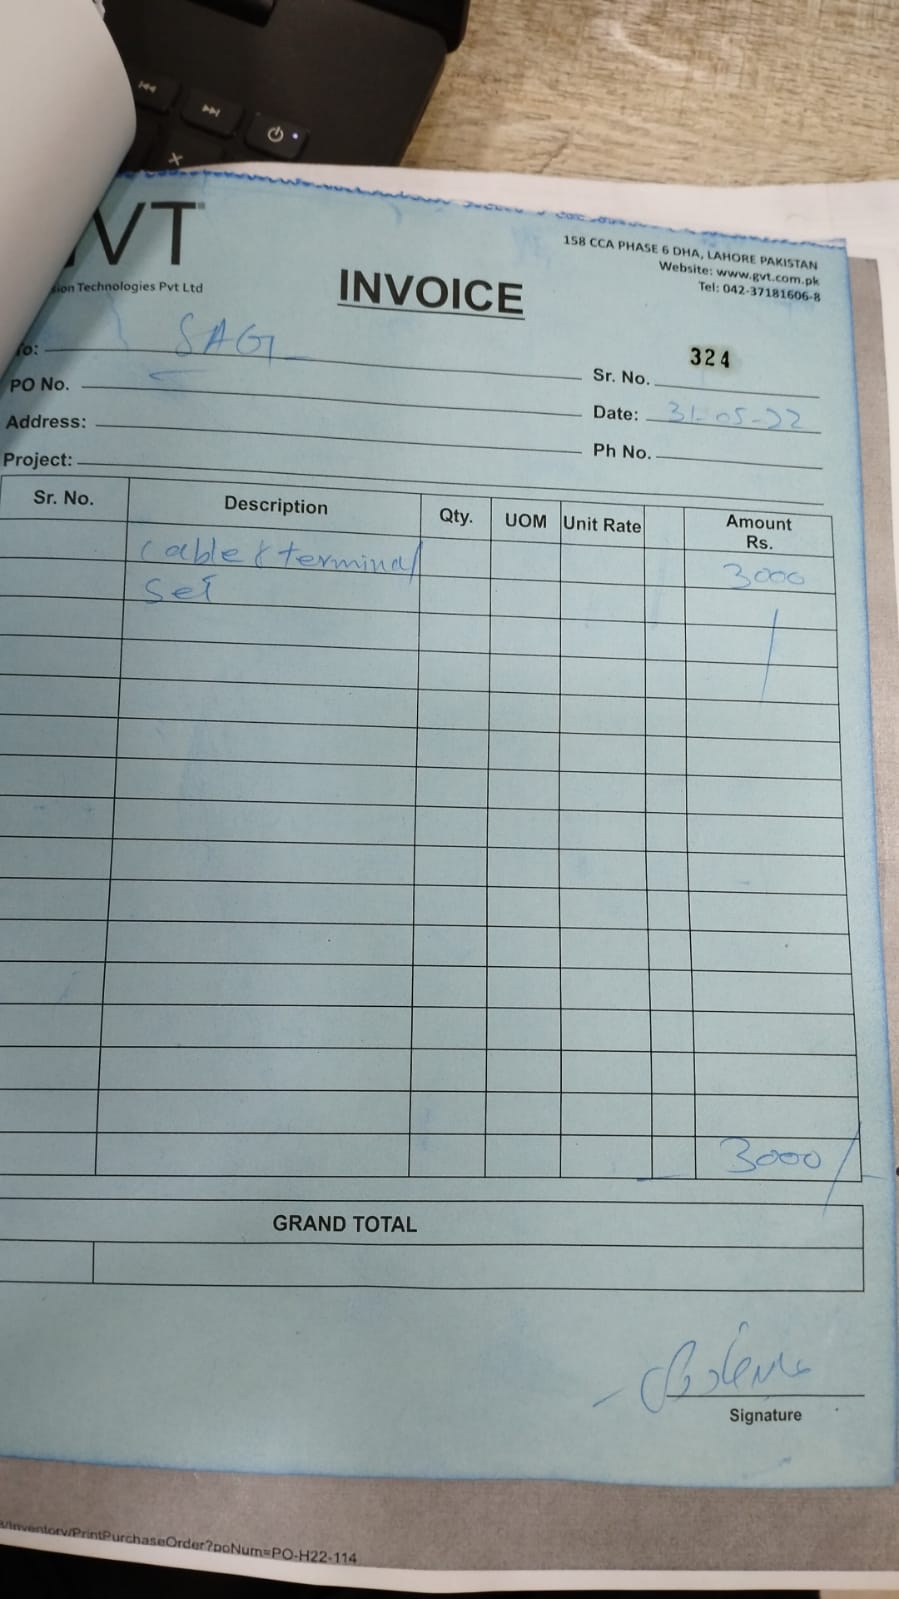 VT
ion Technologies Pvt Ltd
INVOICE
158 CCA PHASE 6 DHA, LAHORE PAKISTAN
Website: www.gvt.com.pk
Tel: 042-37181606-8
To: SAG
Sr. No. 324
PO No.
Date: 31-05-22
Address:
Ph No.
Project:
Sr. No. Description Qty. UOM Unit Rate Amount Rs.
Cable & terminal 3000
Set
3000/-
GRAND TOTAL
Signature
/Inventory/PrintPurchaseOrder?poNum=PO-H22-114